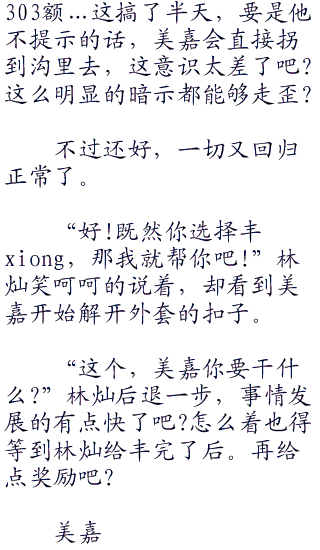 303额…这搞了半天，要是他
不提示的话，美嘉会直接拐
到沟里去，这意识太差了吧?
这么明显的暗示都能够走歪?
不过还好，一切又回归
正常了。
“好!既然你选择丰
xiong，那我就帮你吧!”林
灿笑呵呵的说着，却看到美
嘉开始解开外套的扣子。
“这个，美嘉你要干什
么?”林灿后退一步，事情发
展的有点快了吧?怎么着也得
等到林灿给丰完了后。再给
点奖励吧?
美嘉